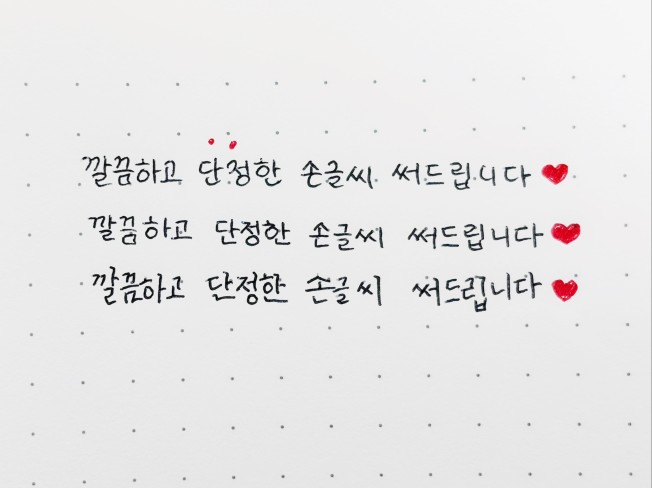 깔끔하고 단정한 손글씨 써드립니다 ♥
깔끔하고 단정한 손글씨 써드립니다 ♥
깔끔하고 단정한 손글씨 써드립니다 ♥